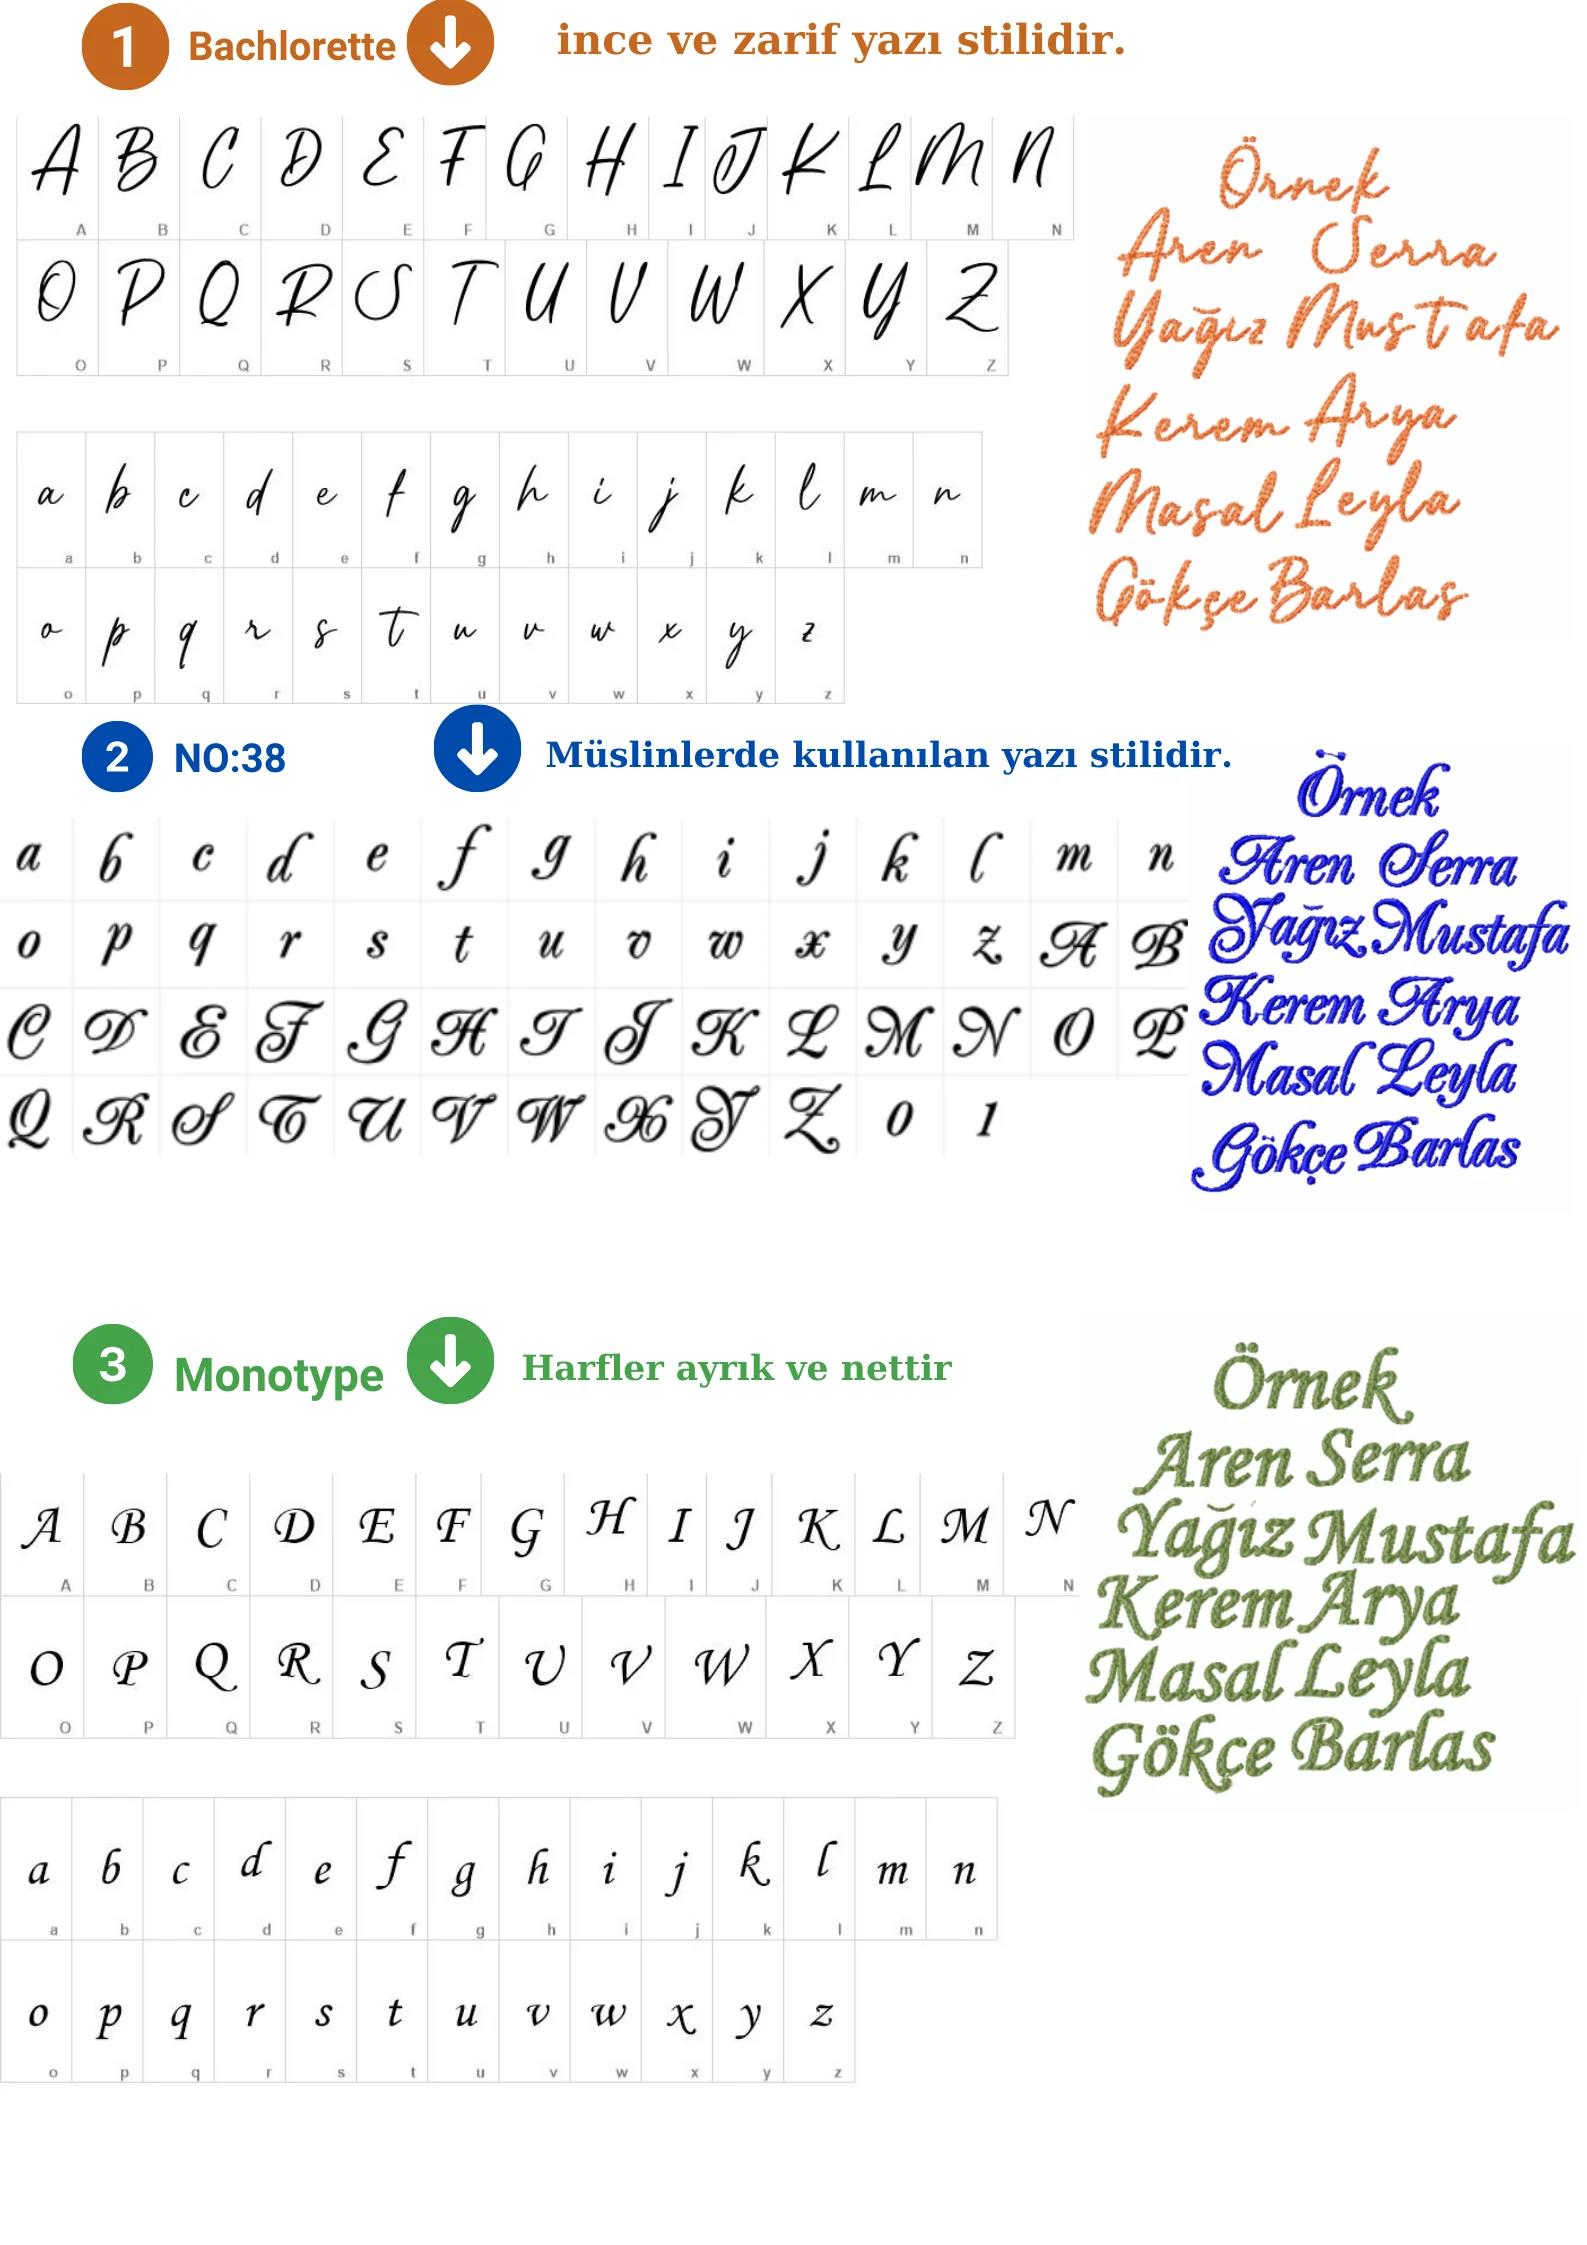 1 Bachlorette ince ve zarif yazı stilidir.
A B C D E F G H I J K L M N
A B C D E F G H I J K L M N
O P Q R S T U V W X Y Z
O P Q R S T U V W X Y Z
a b c d e f g h i j k l m n
a b c d e f g h i j k l m n
o p q r s t u v w x y z
o p q r s t u v w x y z
Örnek
Aren Serra
Yağız Mustafa
Kerem Arya
Masal Leyla
Gökçe Barlas
2 NO:38 Müslinlerde kullanılan yazı stilidir.
a b c d e f g h i j k l m n
o p q r s t u v w x y z A B
C D E F G H I J K L M N O P
Q R S T U V W X Y Z 0 1
Örnek
Aren Serra
Yağız Mustafa
Kerem Arya
Masal Leyla
Gökçe Barlas
3 Monotype Harfler ayrık ve nettir
A B C D E F G H I J K L M N
A B C D E F G H I J K L M N
O P Q R S T U V W X Y Z
O P Q R S T U V W X Y Z
a b c d e f g h i j k l m n
a b c d e f g h i j k l m n
o p q r s t u v w x y z
o p q r s t u v w x y z
Örnek
Aren Serra
Yağız Mustafa
Kerem Arya
Masal Leyla
Gökçe Barlas